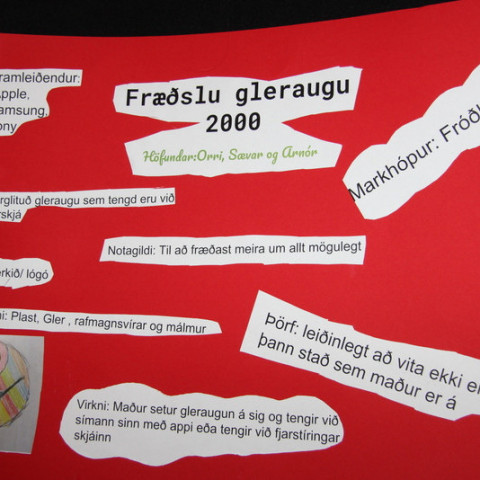 Fræðslu gleraugu
2000
Höfundar:Orri, Sævar og Arnór
ramleiðendur:
Apple,
amsung,
ony
Markhópur: Fróðl
rglituð gleraugu sem tengd eru við
skjá
Notagildi: Til að fræðast meira um allt mögulegt
rkið/ lógó
ni: Plast, Gler , rafmagnsvírar og málmur
Þörf: leiðinlegt að vita ekki
þann stað sem maður er á
Virkni: Maður setur gleraugun á sig og tengir við
símann sinn með appi eða tengir við fjarstíringar
skjáinn